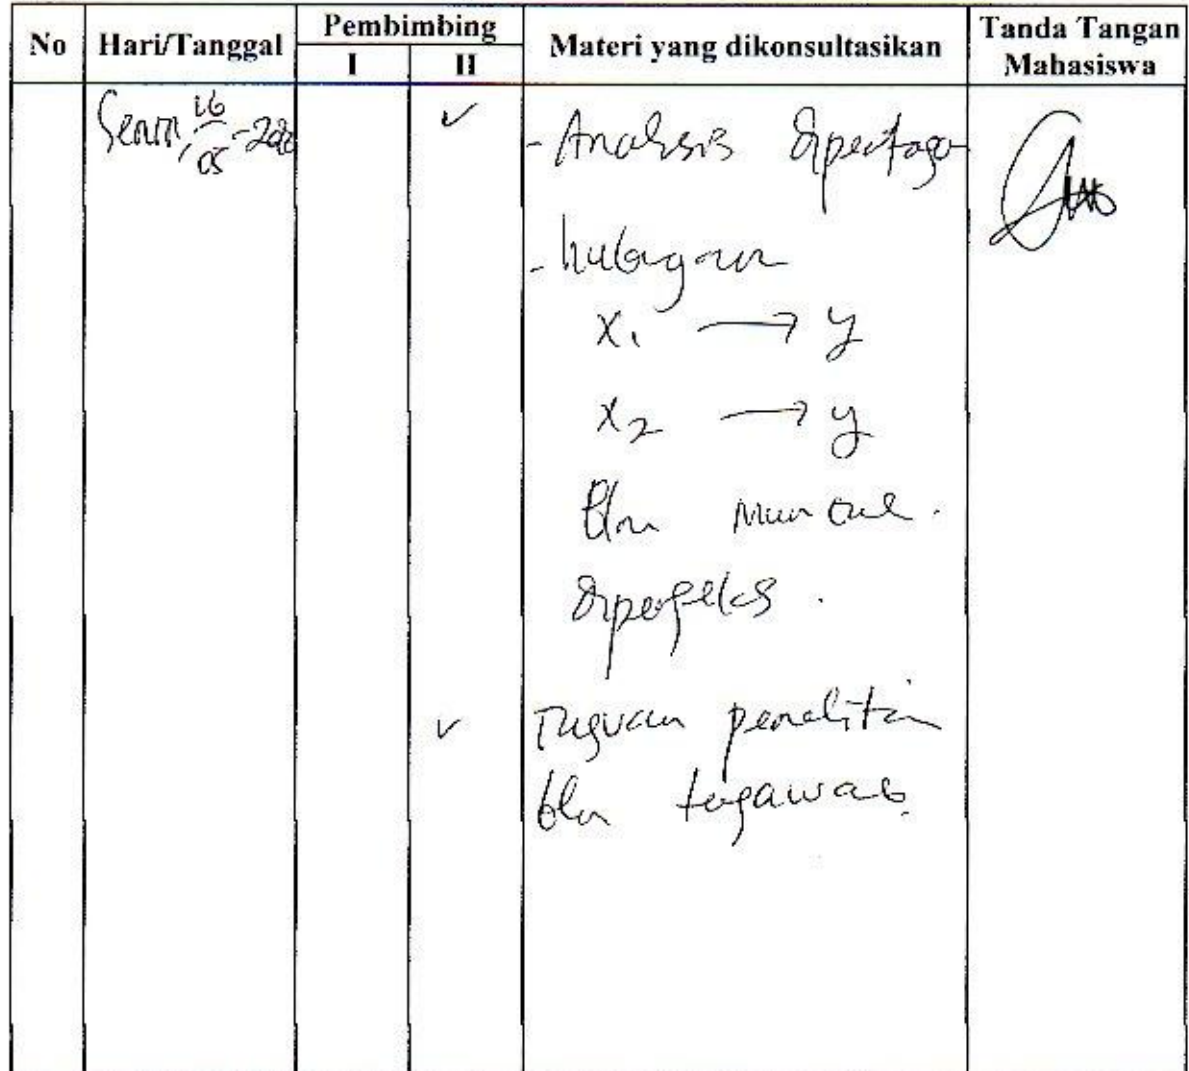 No Hari/Tanggal Pembimbing Materi yang dikonsultasikan Tanda Tangan Mahasiswa
I II
Senin, 16/05-20 ✓ - Analisis dipertaga
- hubungan
X1 → y
X2 → y
bln muncul.
diperjelas.
✓ Tujuan penelitian
bln terjawab.